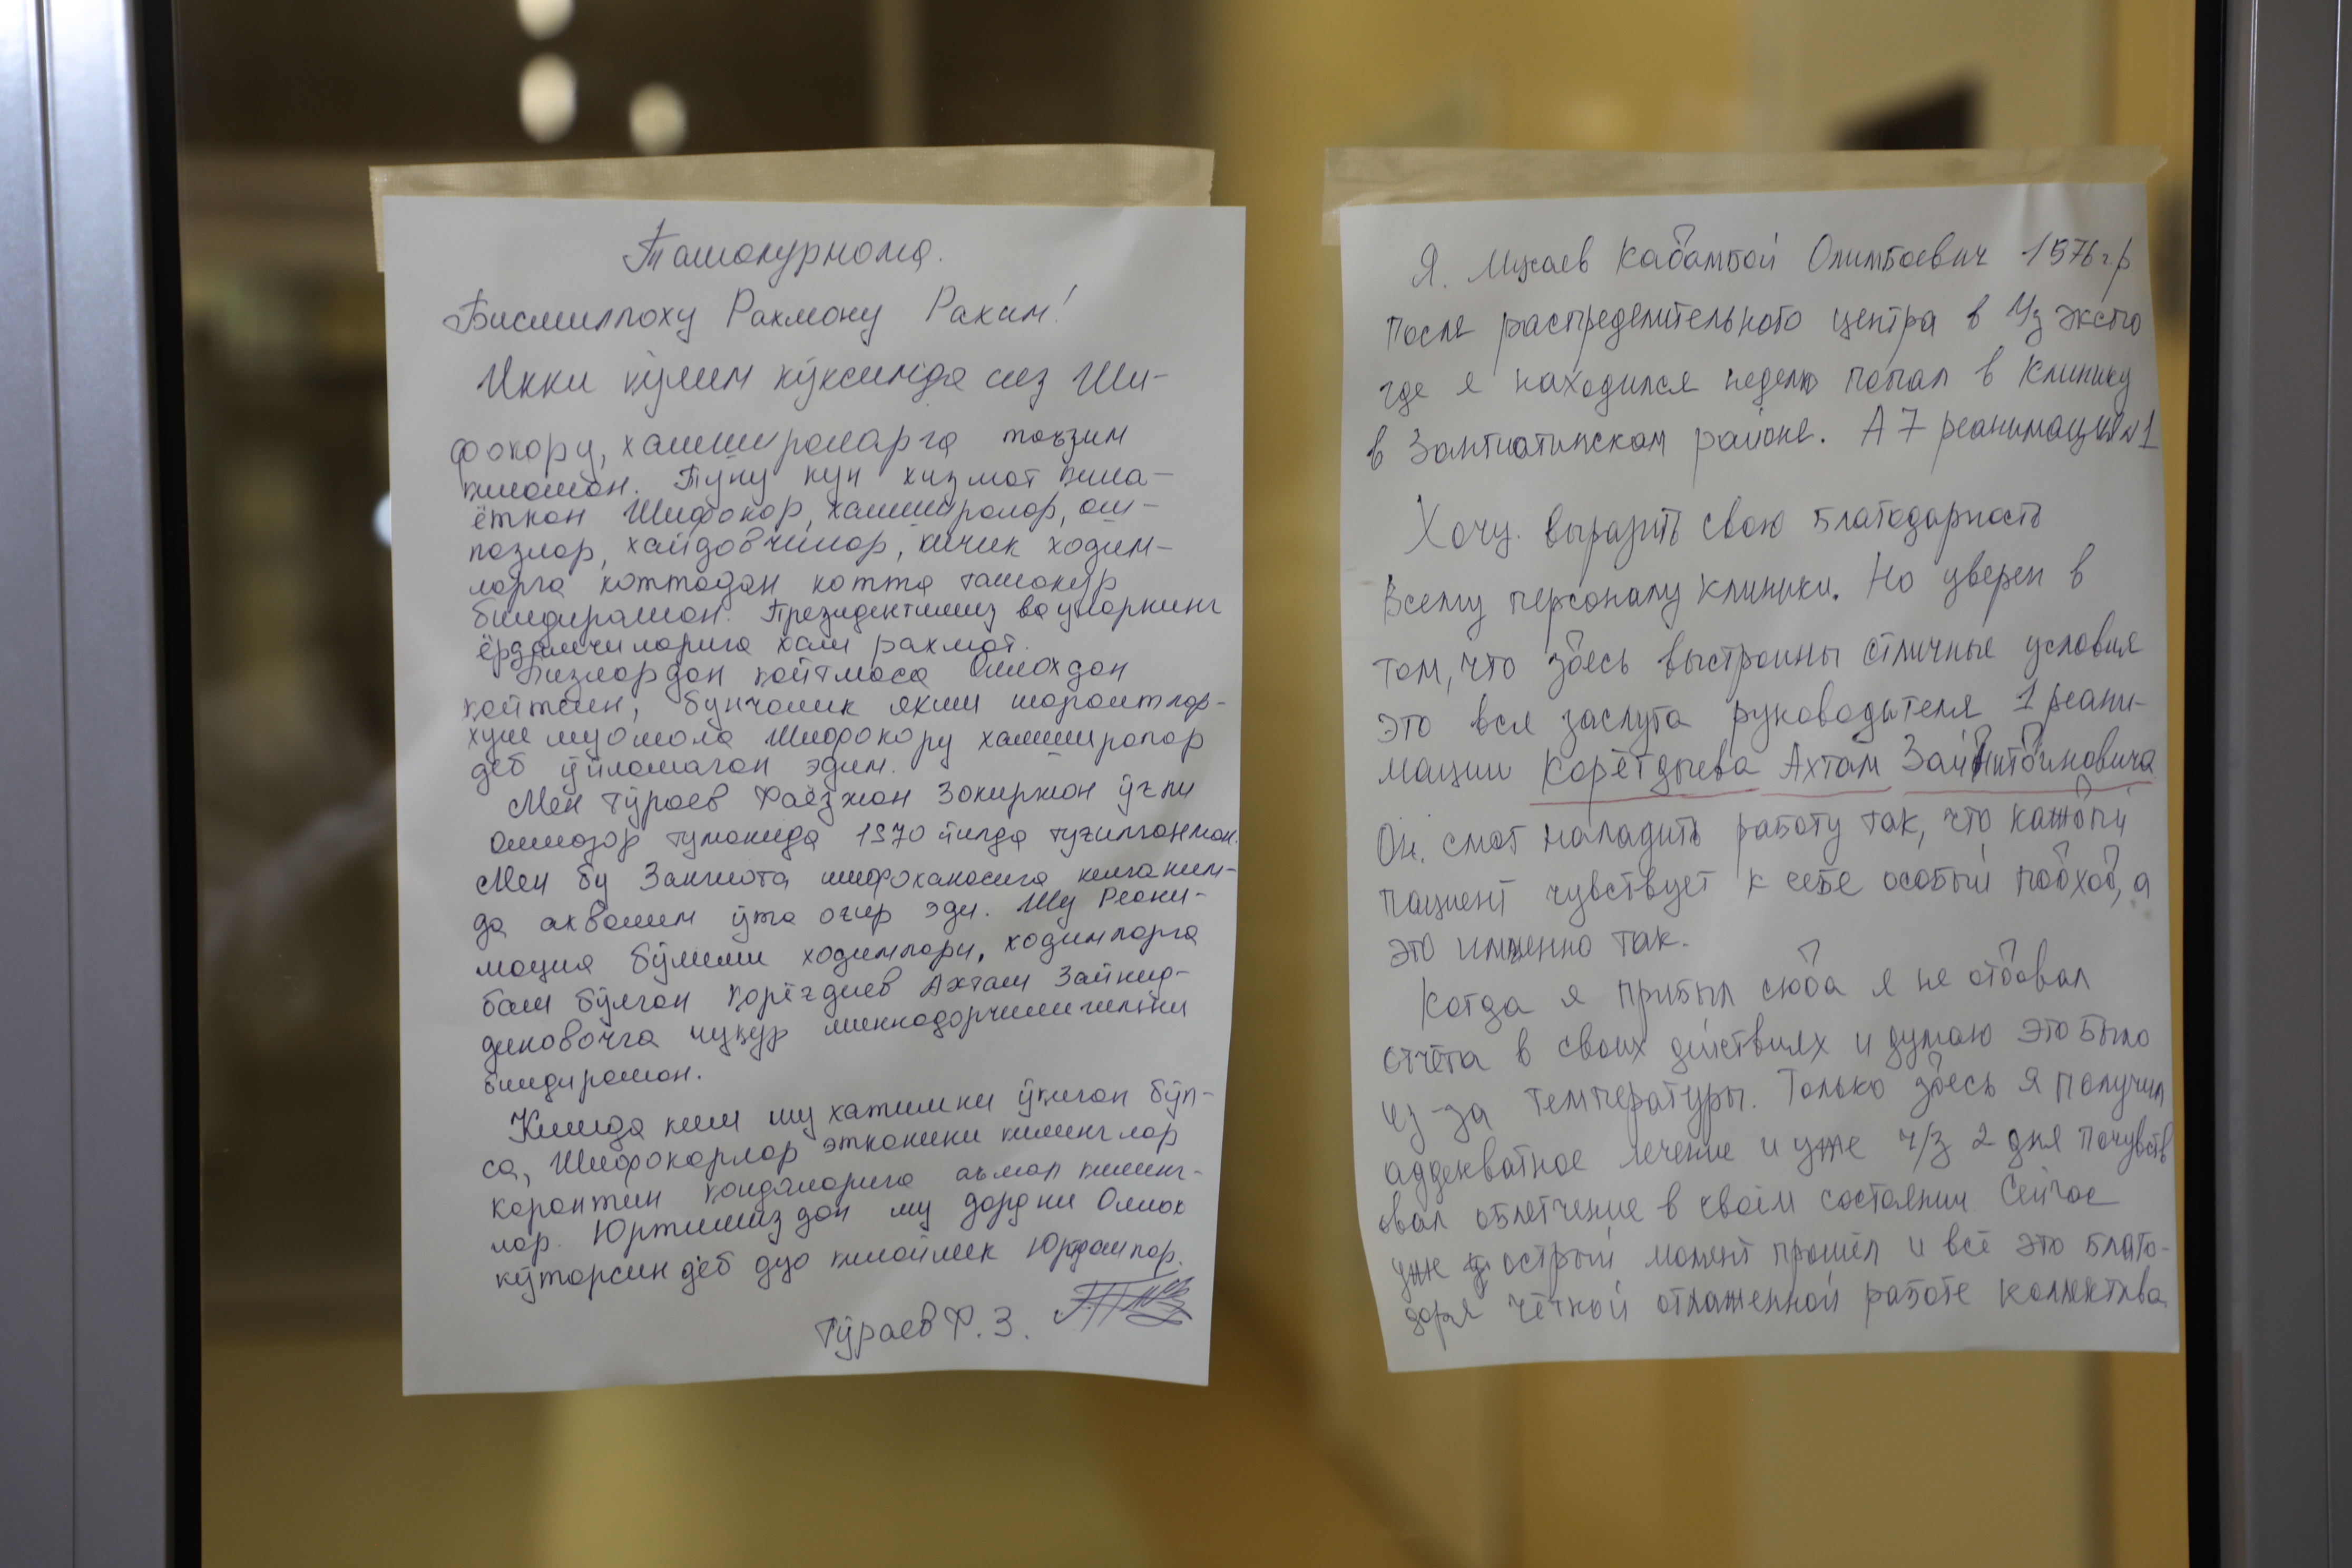 Ташаккурнома.
Бисмиллоху Рахмону Рахим!
Икки қўлим кўксимда сиз Ши-
фокору, хамшираларга таъзим
қиламан. Туну кун хизмат қила-
ётган Шифокор, хамширалар, ош-
пазлар, хайдовчилар, кичик ходим-
ларга каттадан катта ташаккур
билдираман. Президентимиз ва уларнинг
ёрдамчиларига хам рахмат.
Бизлардан қайтмаса Оллохдан
қайтсин, бунчалик яхши шароитлар-
хуш муомала Шифокору хамширалар
деб ўйламаган эдим.
Мен Тўраев Фаёзжон Зокиржон ўгли
Олмазор туманида 1970 йилда туғилганман.
Мен бу Зангиота шифохонасига келганим-
да ахволим ўта оғир эди. Шу Реани-
мация бўлими ходимлари, ходимларга
бош бўлган Қорёғдиев Ахтам Зайнид-
диновичга чуқур миннадорчилигимни
билдираман.
Кимда ким шу хатимни ўқиган бўл-
са, Шифокорлар этканини қилинглар
карантин қоидаларига амал қилинг-
лар. Юртимиздан шу дардни Оллох
кўтарсин деб дуо қилайлик Юртдошлар.
Тўраев Ф. З.
Я. Мусаев Кадамбой Олимбоевич 1976 г.р
после распределительного центра в Уз экспо
где я находился неделю попал в клинику
в Зангиатинском районе. А 7 реанимация №1
Хочу. выразить свою благодарность
всему персоналу клиники. Но уверен в
том, что здесь выстроины отличные условия
это вся заслуга руководителя 1 реани-
мации Корёгдыева Ахтам Зайнитдиновича
Он. смог наладить работу так, что каждый
пациент чувствует к себе особый подход, а
это именно так.
Когда я прибыл сюда я не отдавал
отчёта в своих действиях и думаю это было
из-за температуры. Только здесь я получил
аддекватное лечение и уже ч/з 2 дня почувств
овал облегчение в своём состоянии. Сейчас
уже острый момент прошёл и всё это благо-
даря чёткой отлаженной работе коллектива